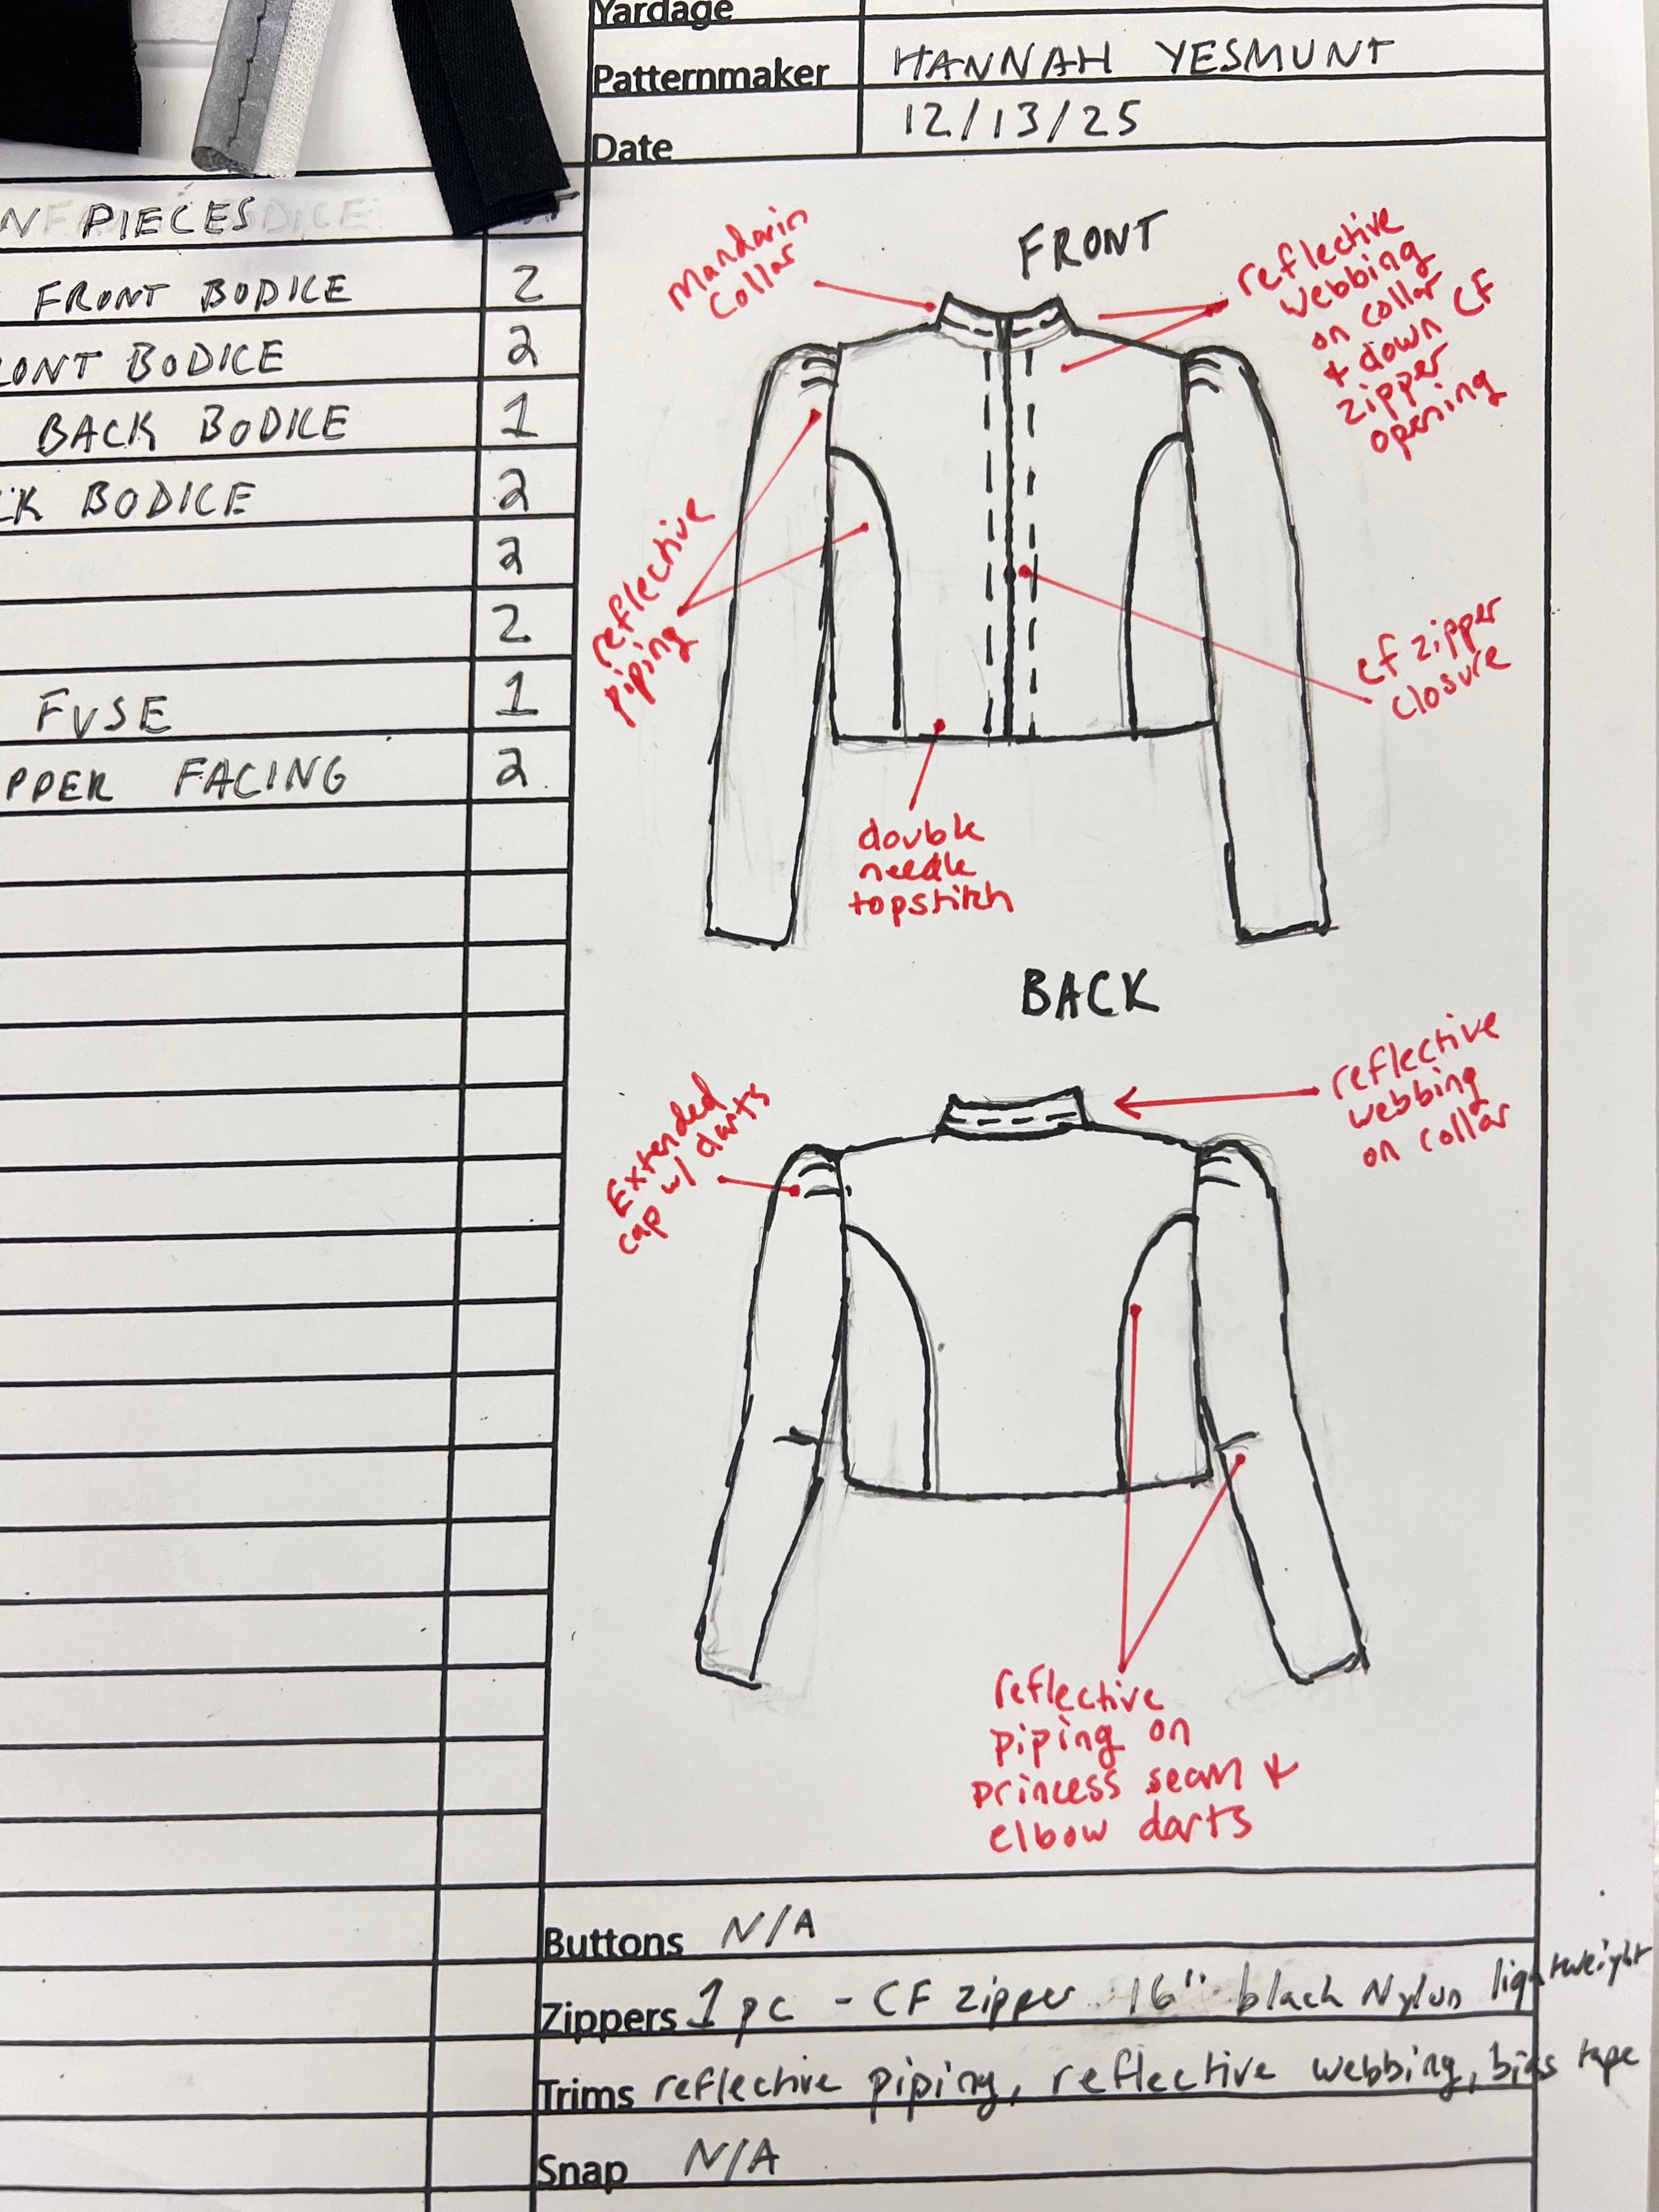 Yardage
Patternmaker HANNAH YESMUNT
Date 12/13/25
PIECES
FRONT BODICE 2
FRONT BODICE 2
BACK BODICE 1
BODICE 2
2
2
FUSE 1
FACING 2
FRONT
Mandarin
Collar
reflective
webbing
on collar
+ down CF
zipper
opening
reflective
piping
cf zipper
closure
double
needle
topstitch
BACK
Extended
cap w/ darts
reflective
webbing
on collar
reflective
piping on
princess seam +
elbow darts
Buttons N/A
Zippers 1 pc - CF zipper 16" black Nylon lightweight
Trims reflective piping, reflective webbing, bias tape
Snap N/A